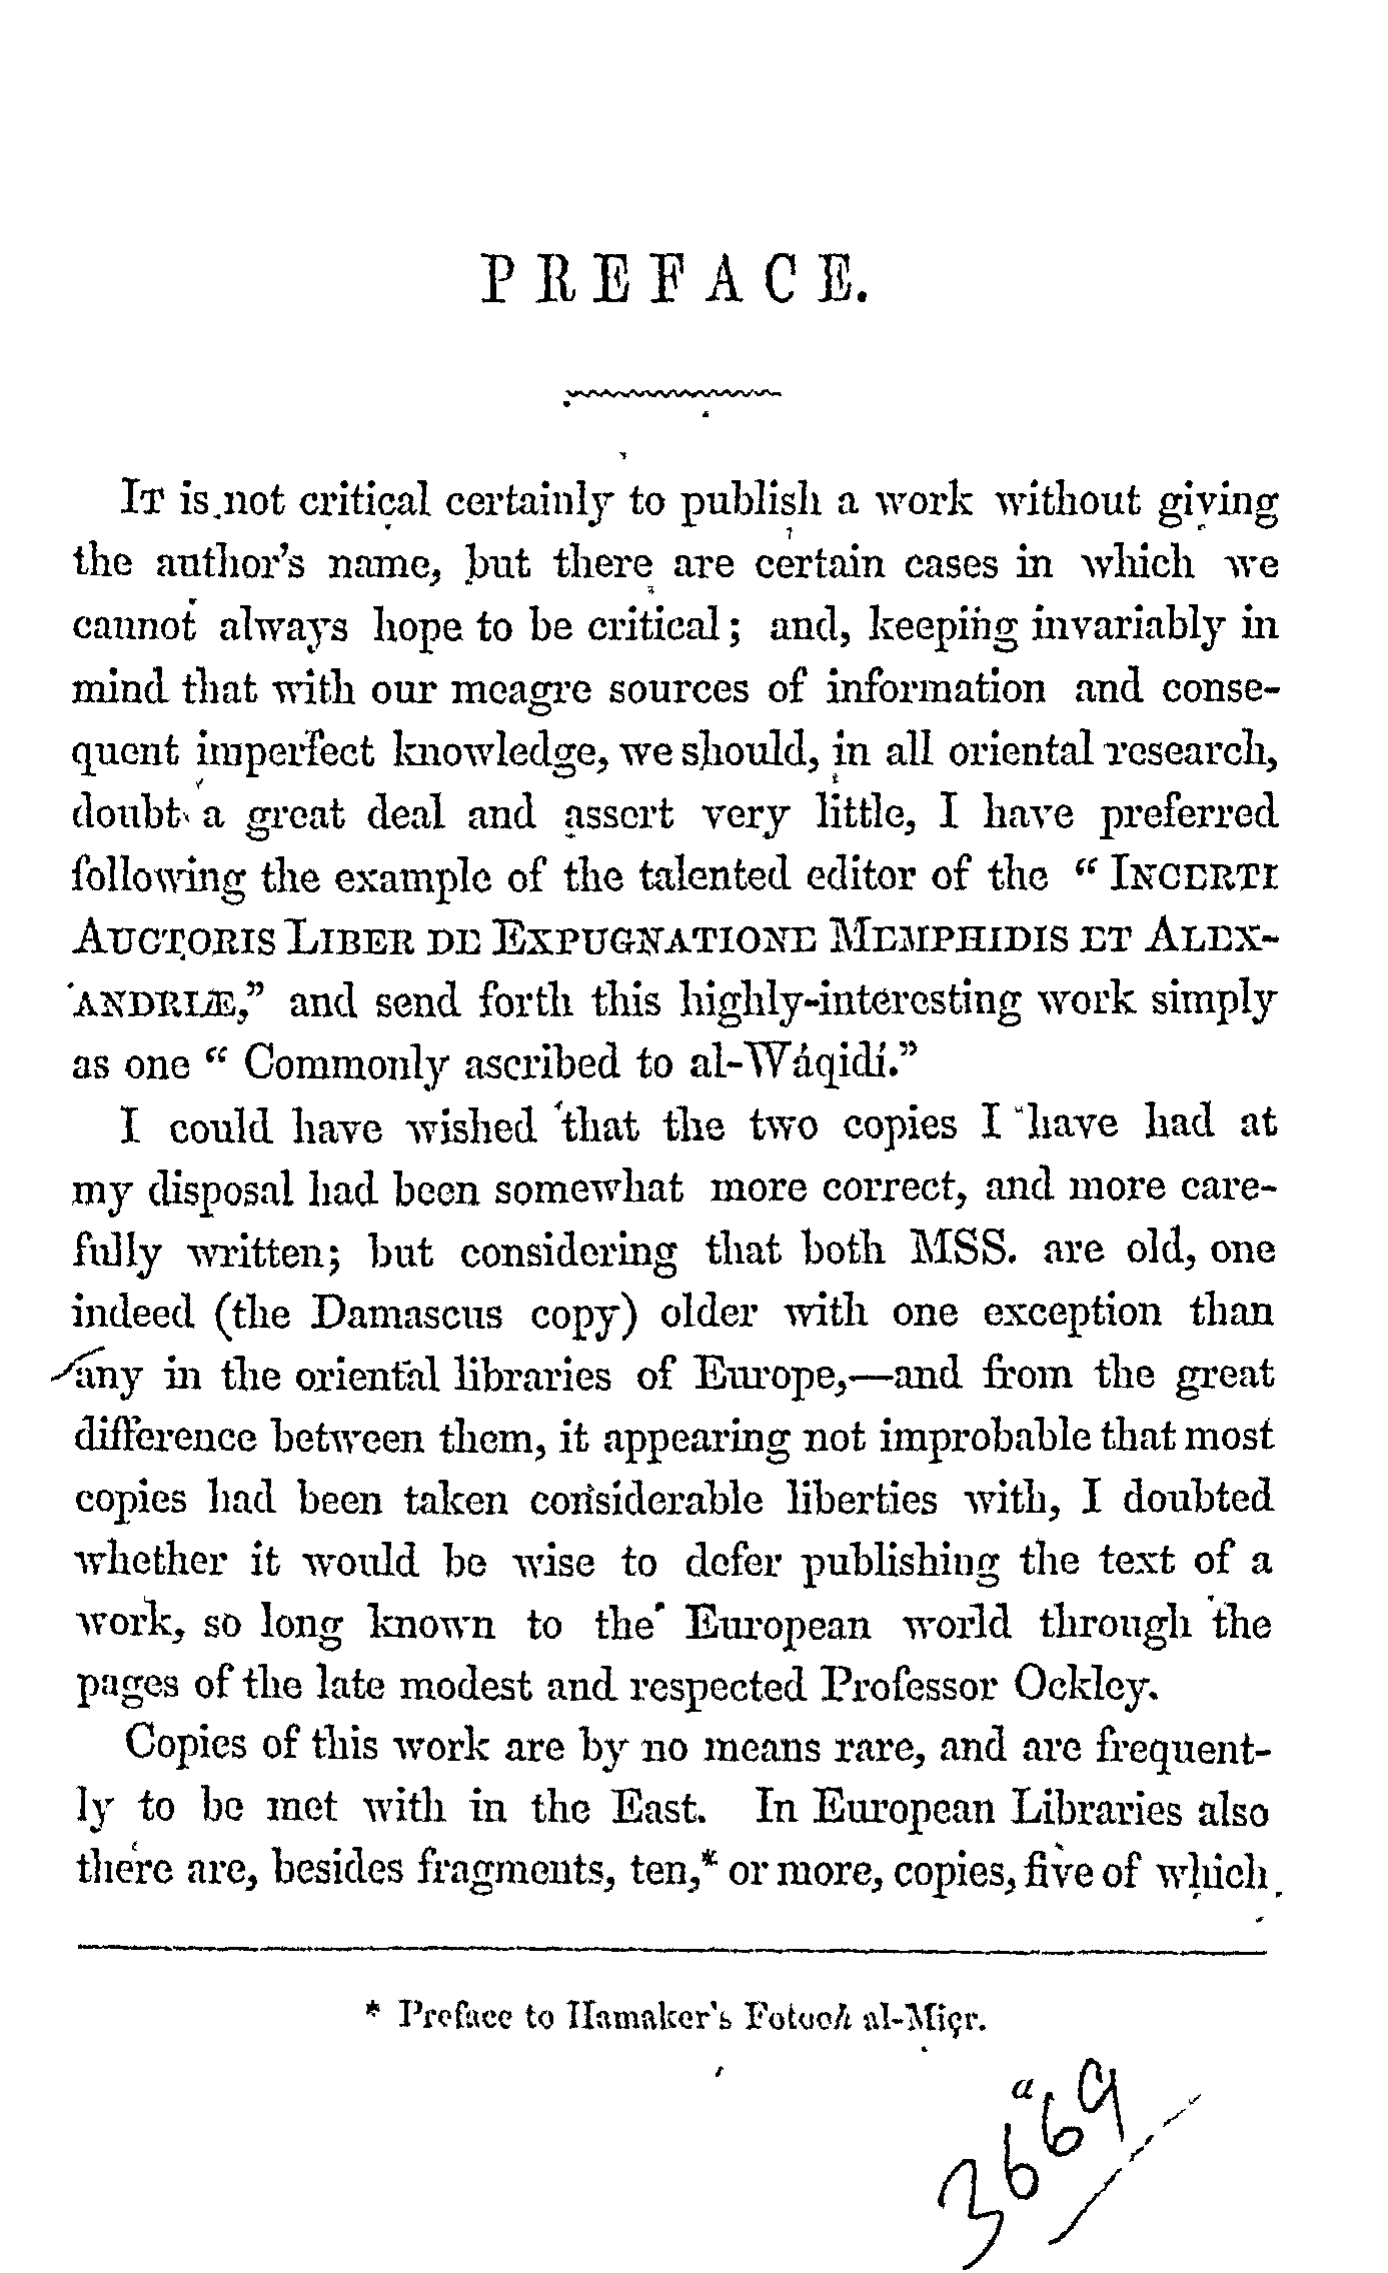 PREFACE.
IT is not critical certainly to publish a work without giving
the author's name, but there are certain cases in which we
cannot always hope to be critical; and, keeping invariably in
mind that with our meagre sources of information and conse-
quent imperfect knowledge, we should, in all oriental research,
doubt a great deal and assert very little, I have preferred
following the example of the talented editor of the “ INCERTI
AUCTORIS LIBER DE EXPUGNATIONE MEMPHIDIS ET ALEX-
ANDRIÆ,” and send forth this highly-interesting work simply
as one “ Commonly ascribed to al-Wáqidí.”
I could have wished that the two copies I have had at
my disposal had been somewhat more correct, and more care-
fully written; but considering that both MSS. are old, one
indeed (the Damascus copy) older with one exception than
any in the oriental libraries of Europe,—and from the great
difference between them, it appearing not improbable that most
copies had been taken considerable liberties with, I doubted
whether it would be wise to defer publishing the text of a
work, so long known to the European world through the
pages of the late modest and respected Professor Ockley.
Copies of this work are by no means rare, and are frequent-
ly to be met with in the East. In European Libraries also
there are, besides fragments, ten,* or more, copies, five of which
* Preface to Hamaker's Fotooh al-Miçr.
a
3669